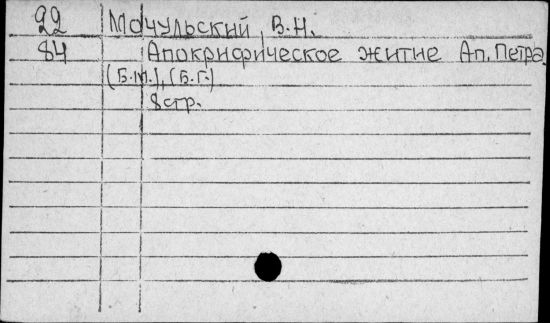 22 Мочульский, В.Н.
84 Апокрифическое житие Ап. Петра.
(Б.М.), (Б.Г.)
8 стр.